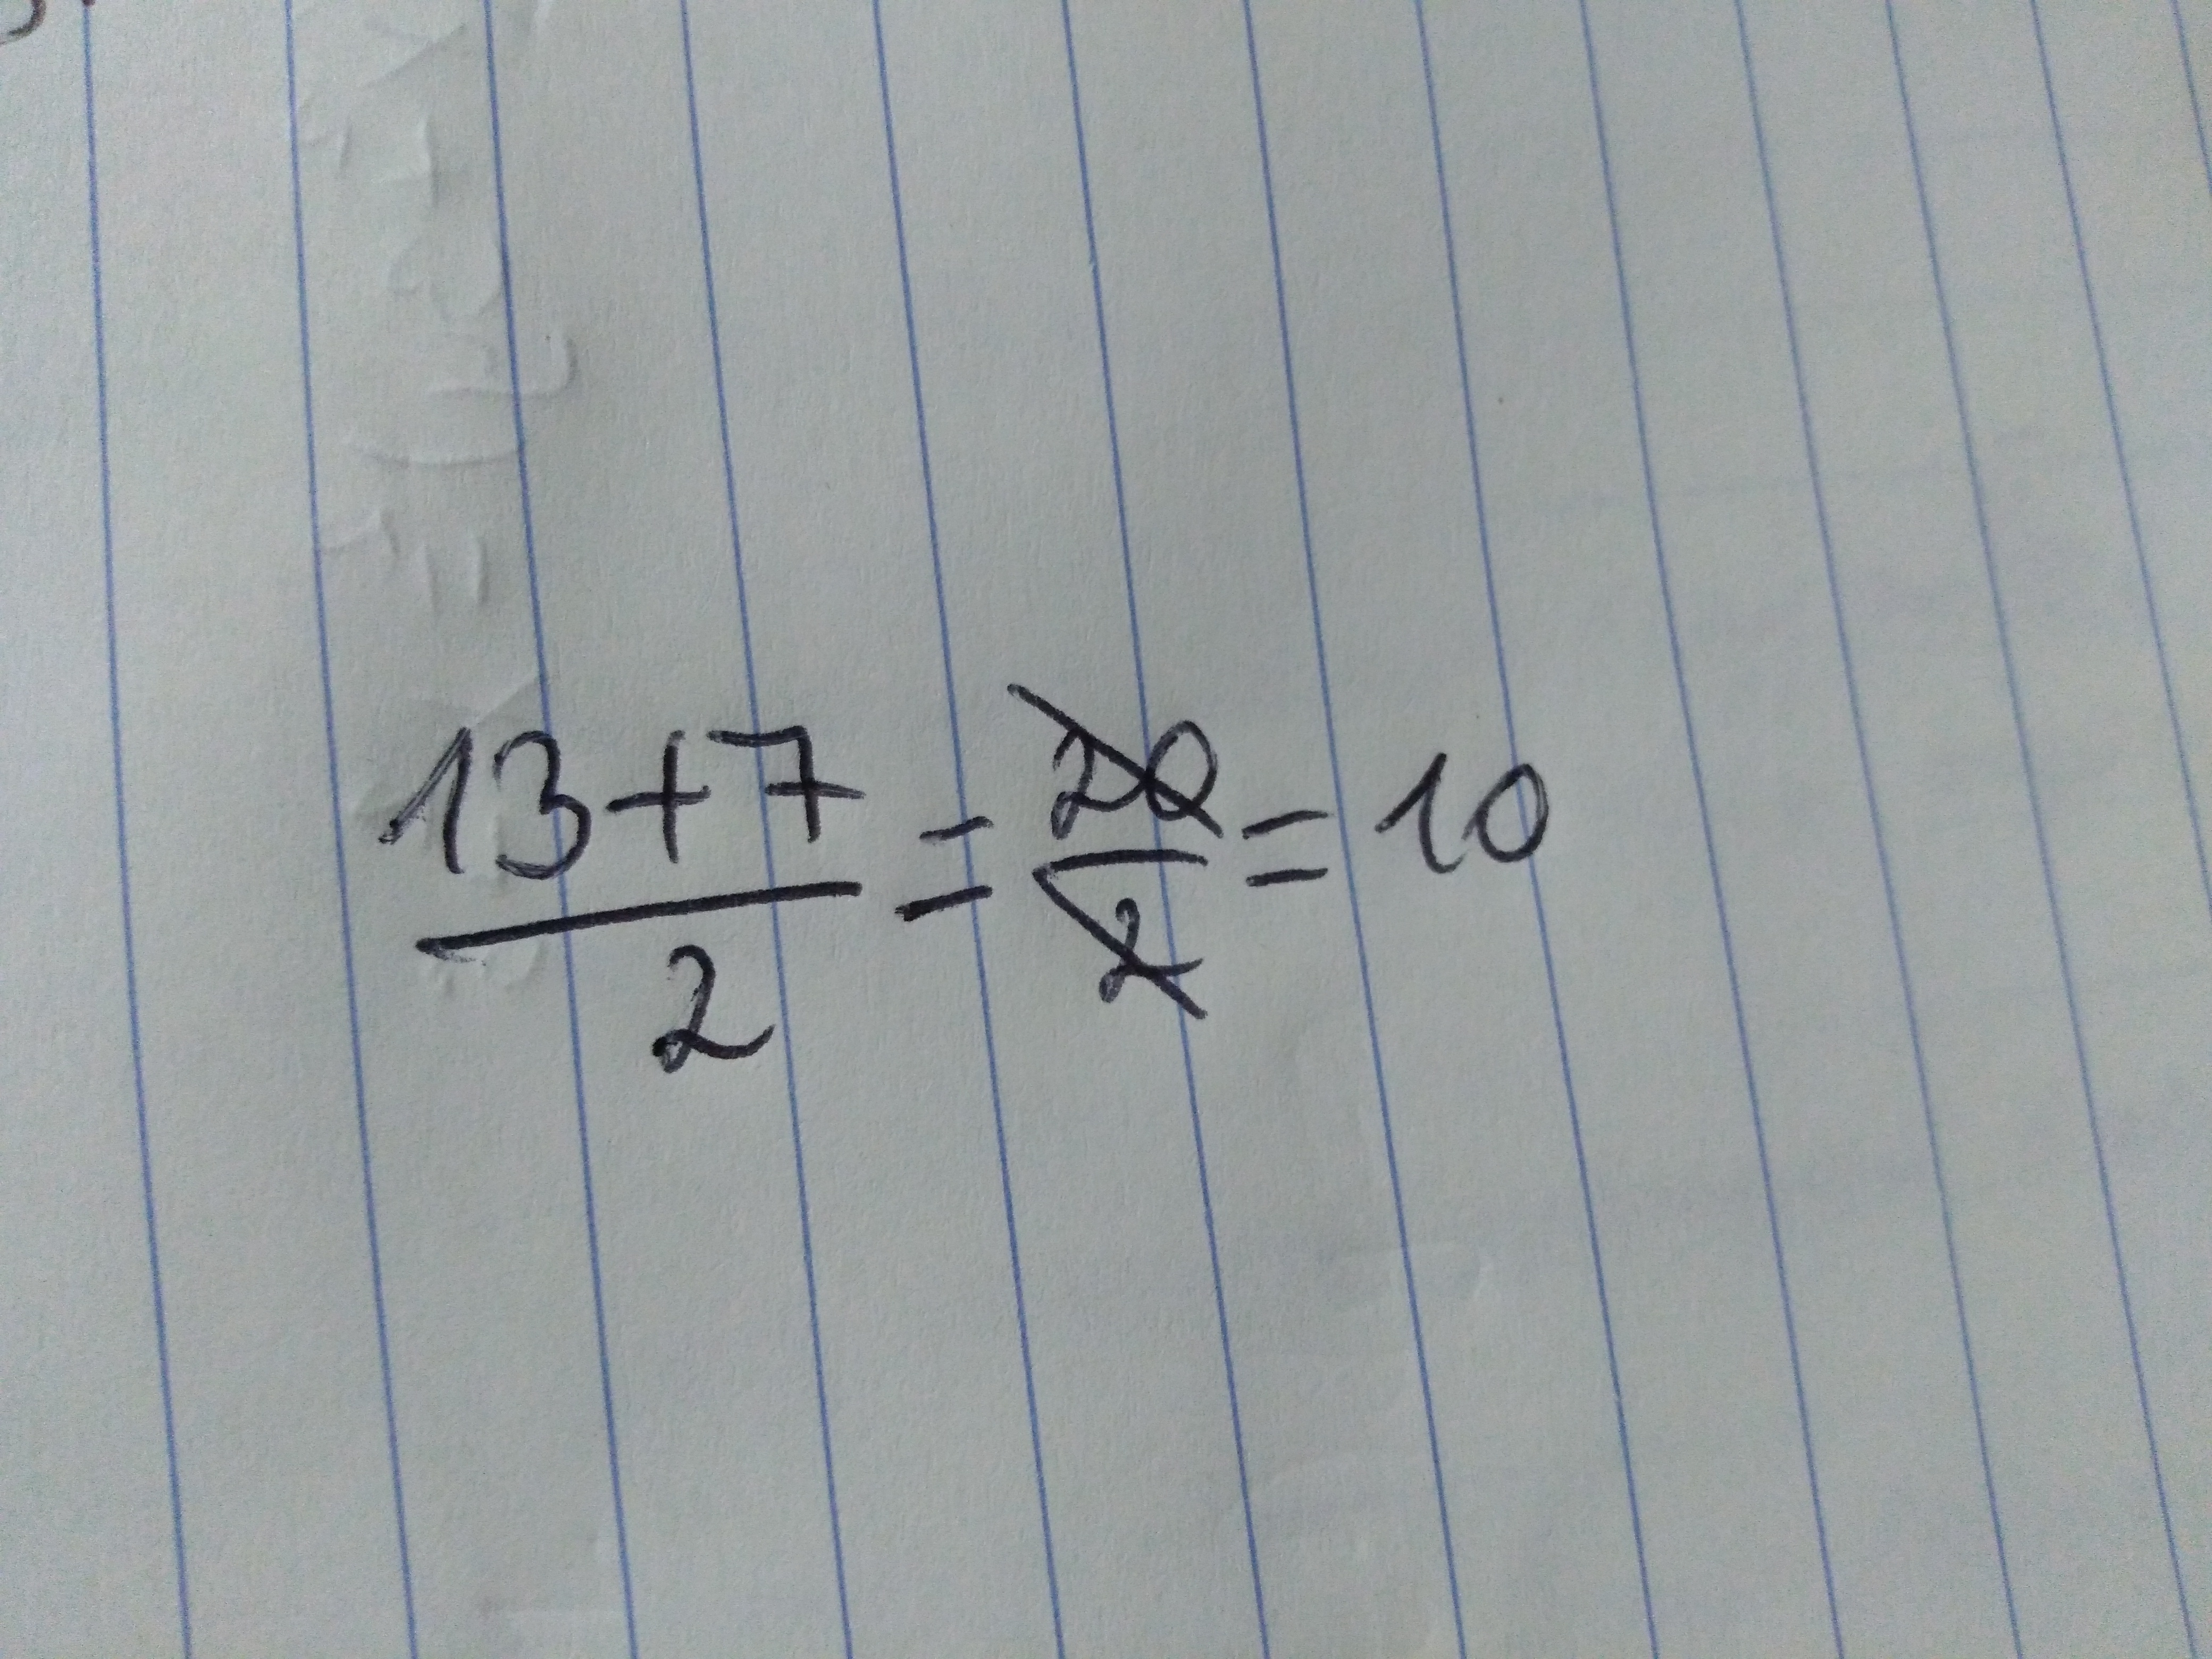 13+7/2 = 20/2 = 10